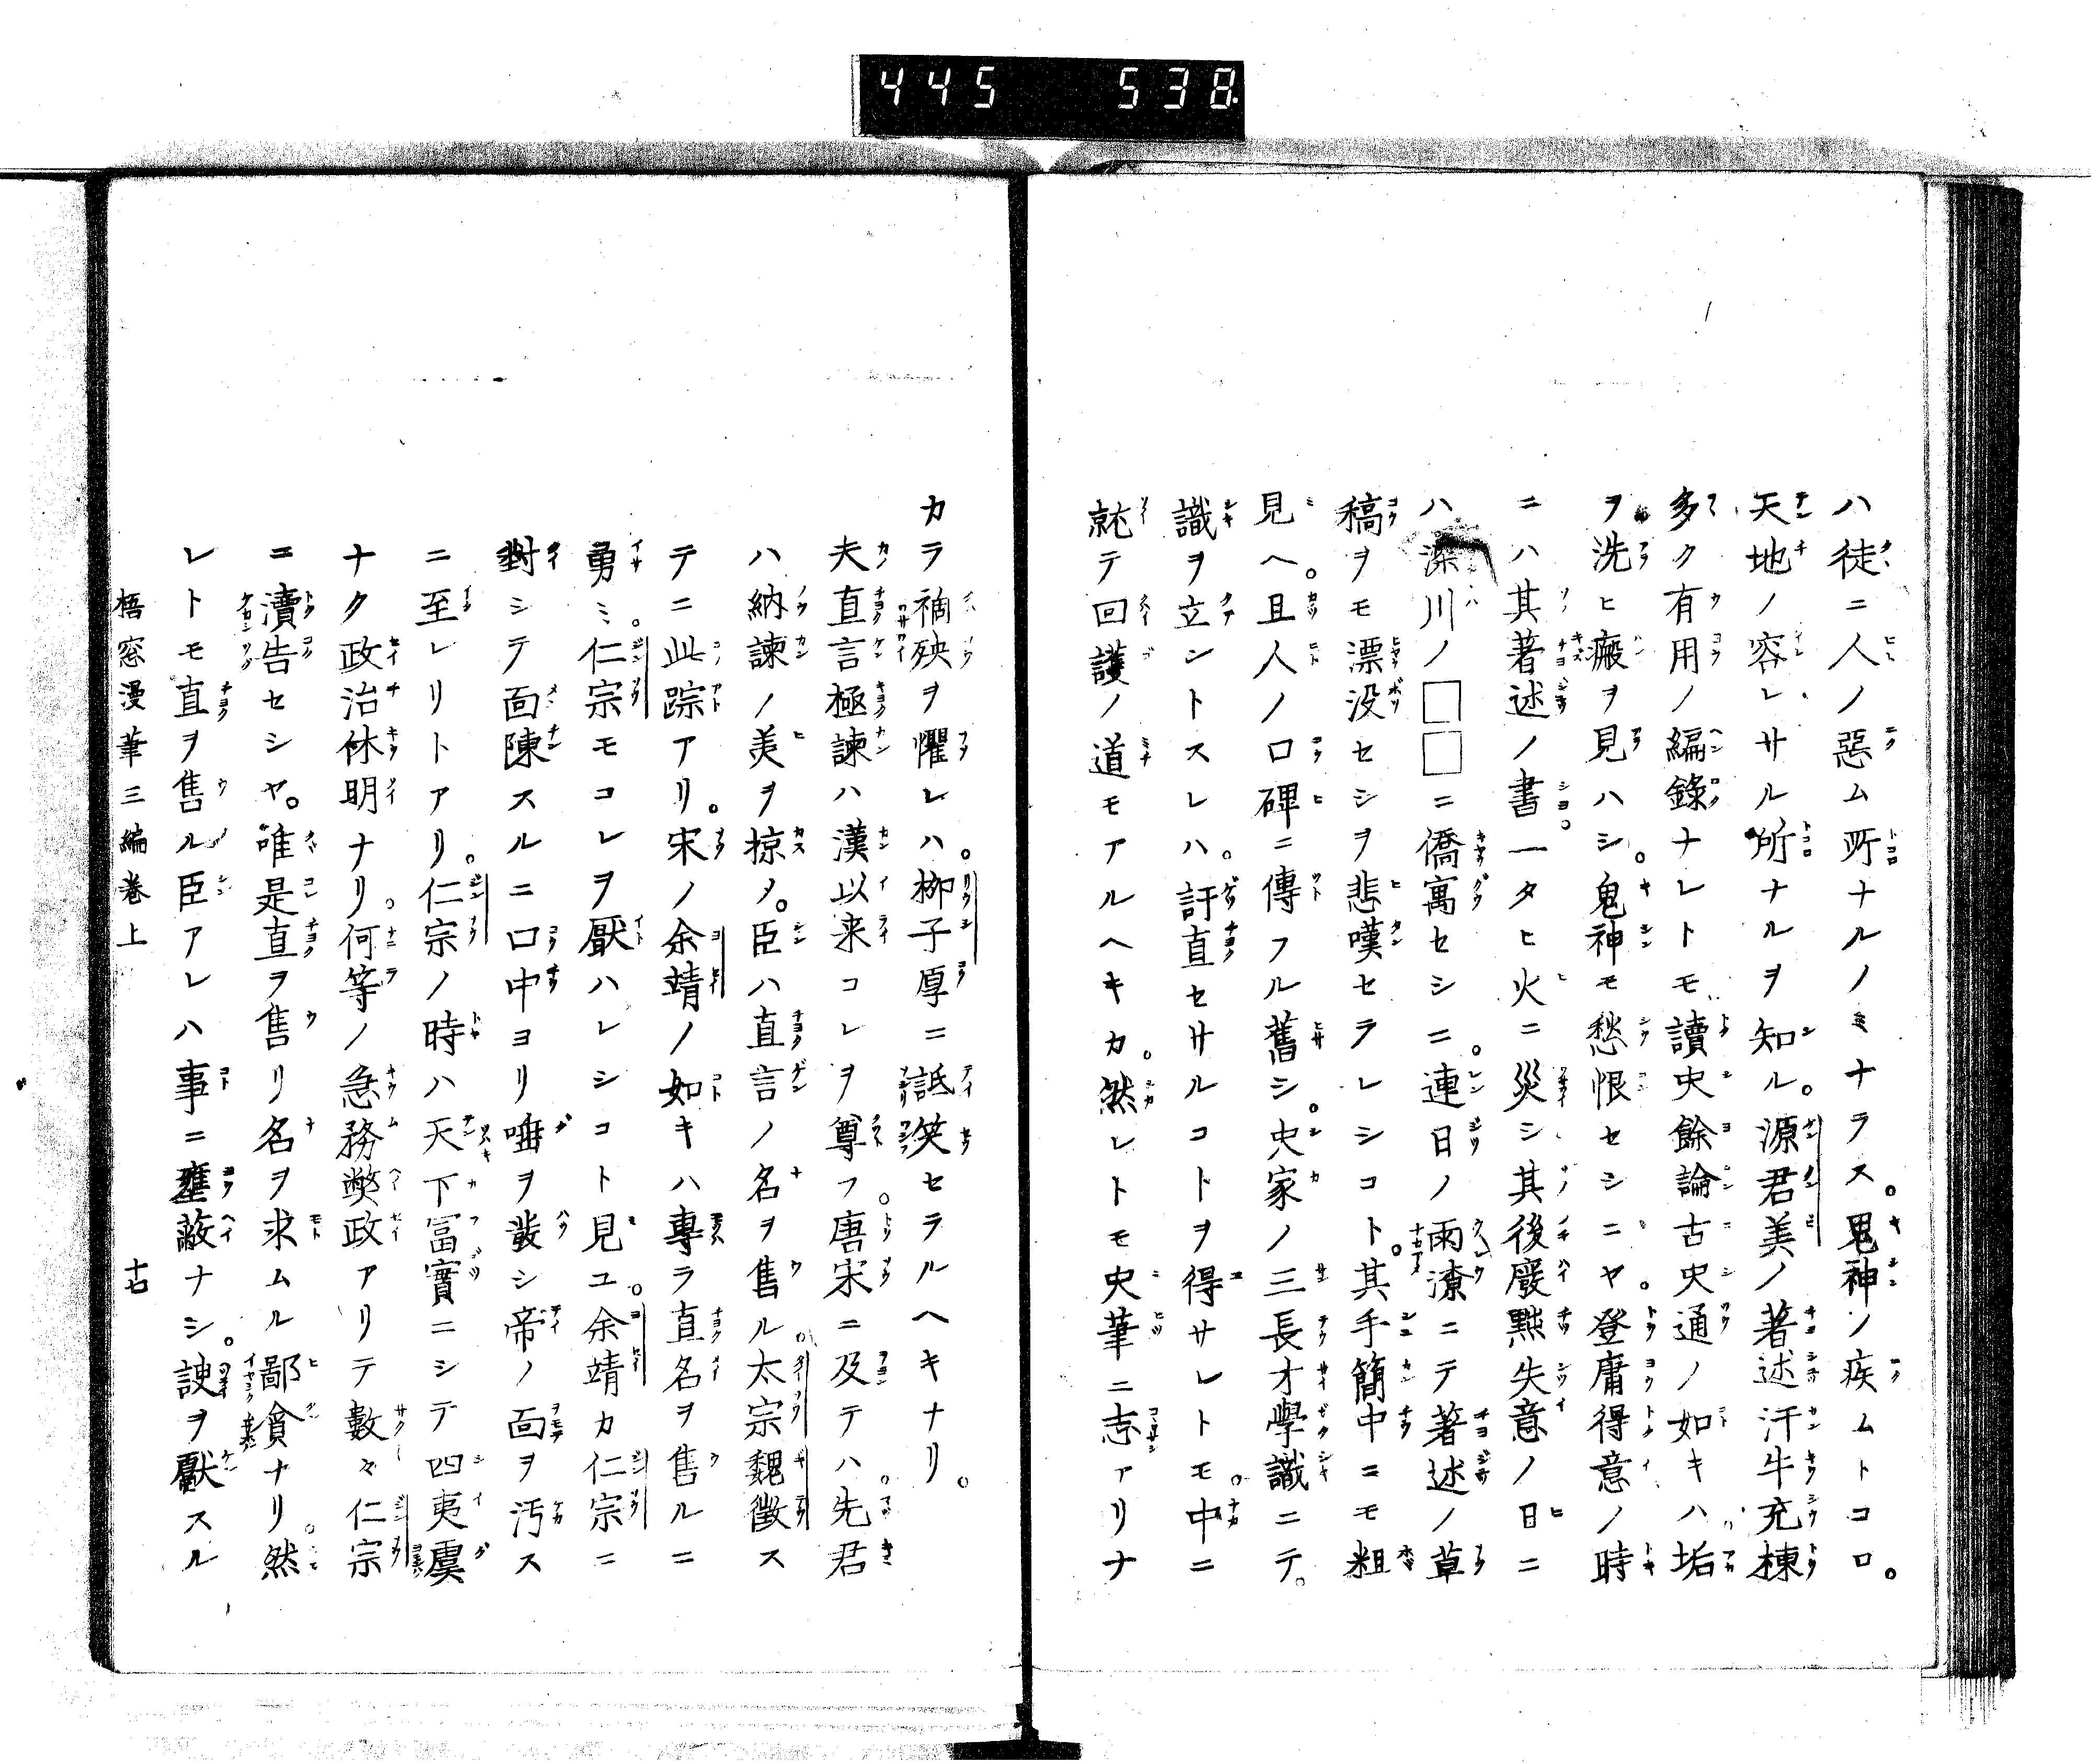 445 538
ハ徒ニ人ノ惡ム所ナルノミナラス。鬼神ノ疾ムトコロ。
天地ノ容レサル所ナルヲ知ル。源君美ノ著述汗牛充棟
多ク有用ノ編錄ナレトモ讀史餘論古史通ノ如キハ垢
ヲ洗ヒ瘢ヲ見ハシ。鬼神モ愁恨セシニヤ。登庸得意ノ時
ニハ其著述ノ書。一タヒ火ニ災シ其後廢黜失意ノ日ニ
ハ深川ノ□□ニ僑寓セシニ。連日ノ雨潦ニテ著述ノ草
稿ヲモ漂没セシヲ悲嘆セラレシコト。其手簡中ニモ粗
見ヘ。且人ノ口碑ニ傳フル舊シ。史家ノ三長才學識ニテ。
識ヲ立ントスレハ。訐直セサルコトヲ得サレトモ。中ニ
就テ回護ノ道モアルヘキカ。然レトモ史筆ニ志アリナ
カラ禍殃ヲ懼レハ。柳子厚ニ詆笑セラルヘキナリ。
夫直言極諫ハ漢以来コレヲ尊フ。唐宋ニ及テハ。先君
ハ納諫ノ美ヲ掠メ。臣ハ直言ノ名ヲ售ル。太宗魏徵ス
テニ此踪アリ。宋ノ余靖ノ如キハ專ラ直名ヲ售ルニ
勇ミ。仁宗モコレヲ厭ハレシコト見ユ。余靖カ仁宗ニ
對シテ面陳スルニ口中ヨリ唾ヲ發シ帝ノ面ヲ汚ス
ニ至レリトアリ。仁宗ノ時ハ天下冨實ニシテ四夷虞
ナク政治休明ナリ。何等ノ急務弊政アリテ數々仁宗
ニ瀆告セシヤ。唯是直ヲ售リ名ヲ求ムル鄙貪ナリ。然
レトモ直ヲ售ル臣アレハ事ニ壅蔽ナシ。諛ヲ獻スル
梧窓漫筆三編巻上 十七